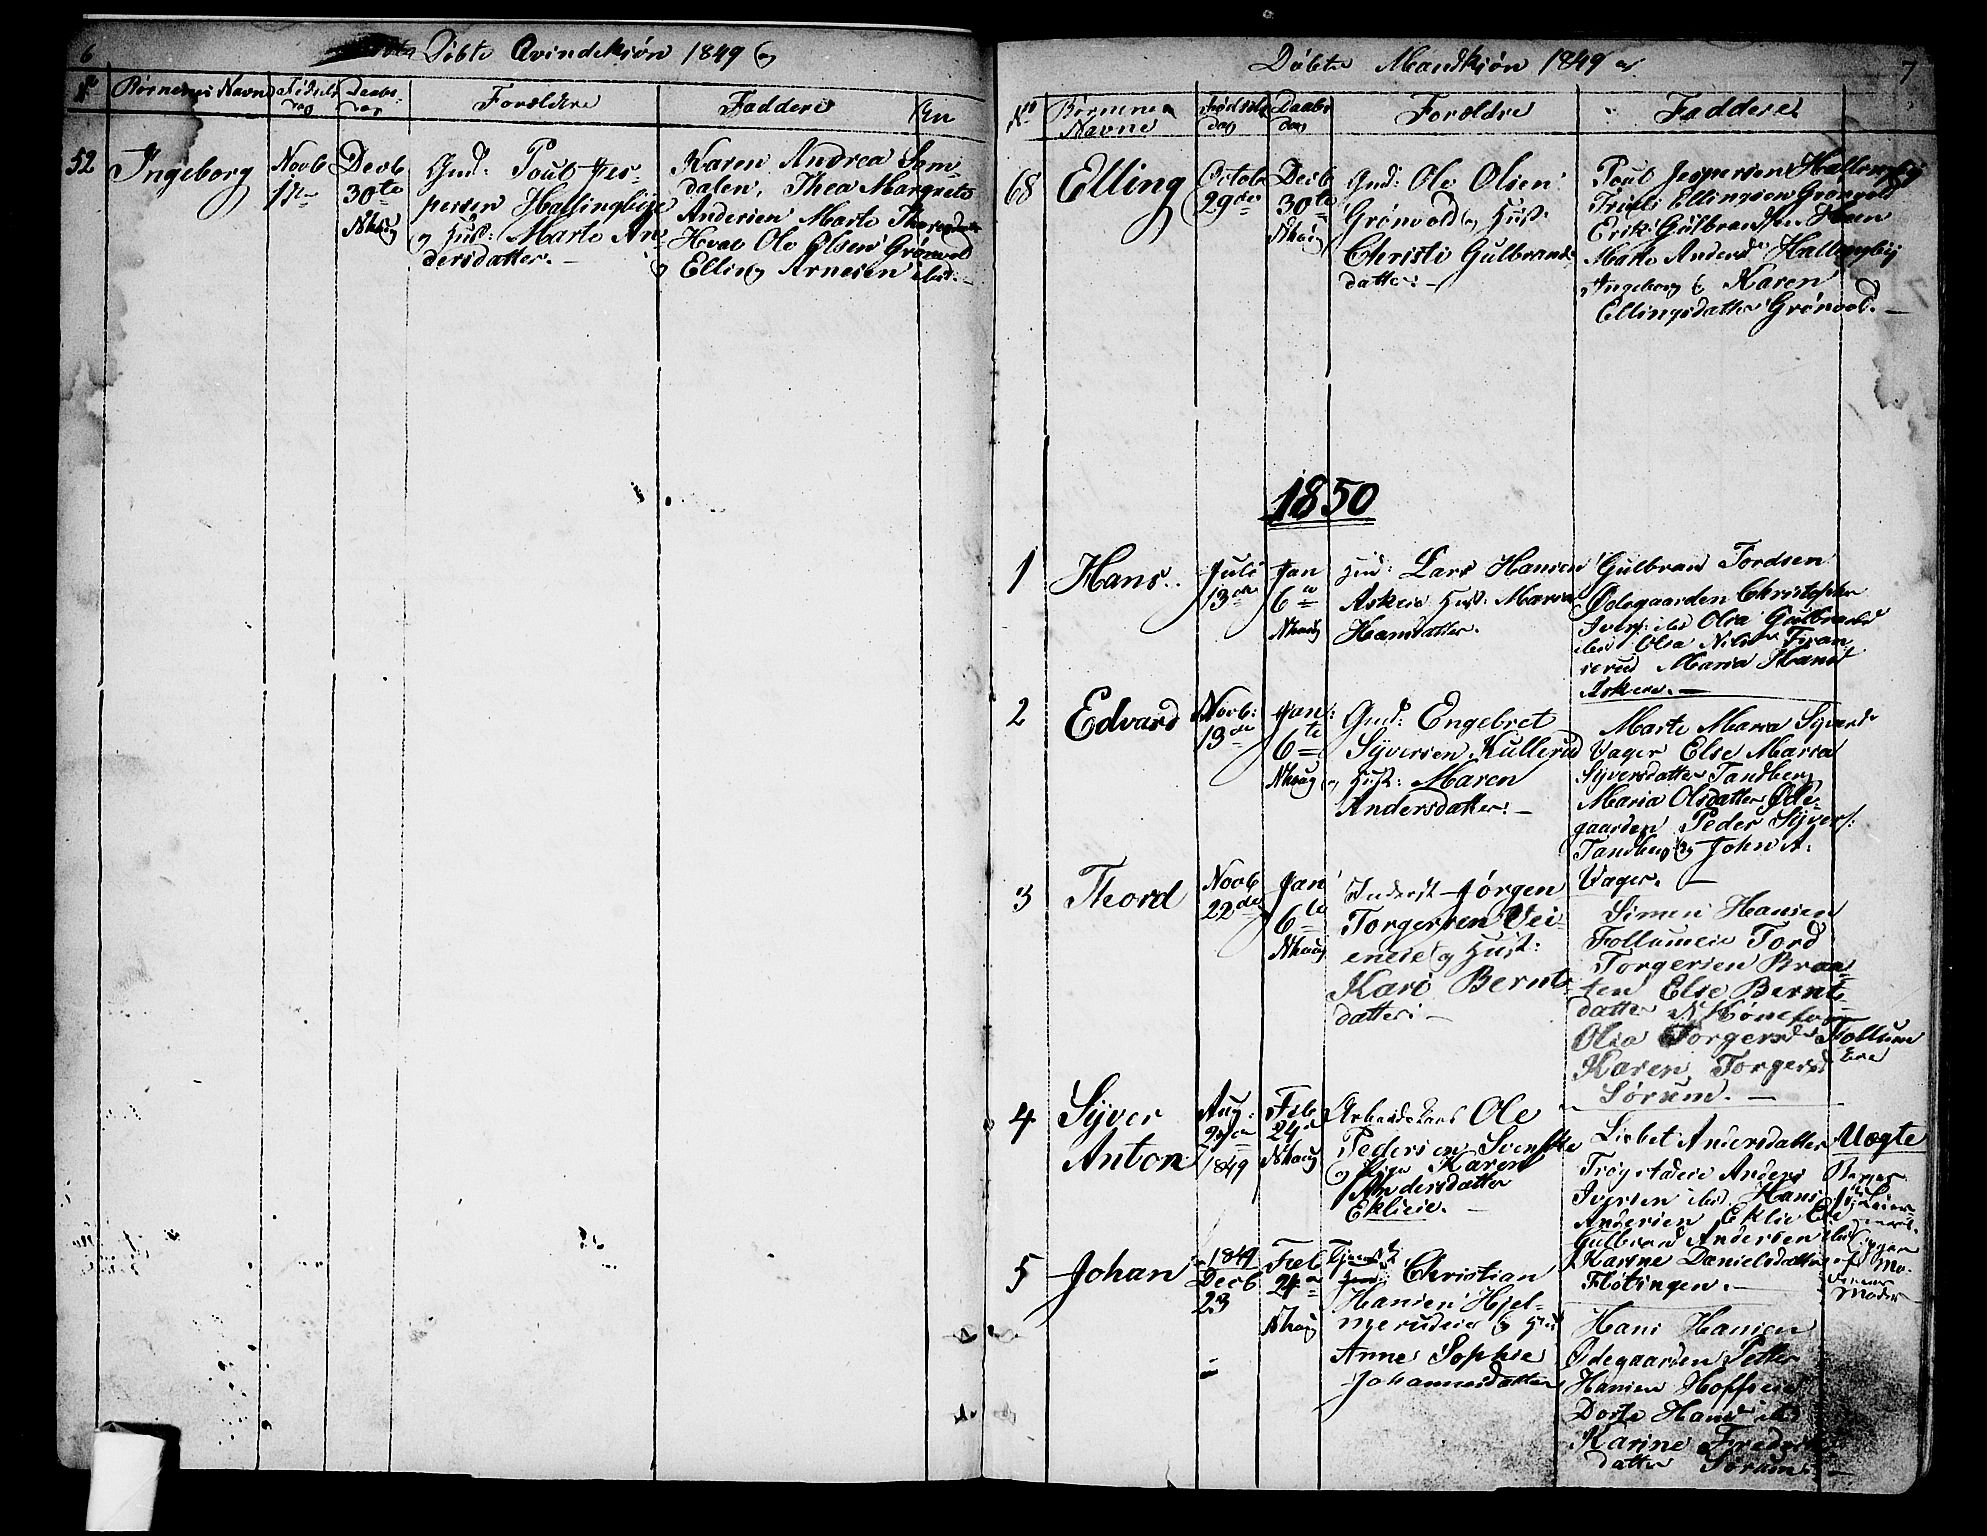 6
Døbte Qvindekiøn 1849
No
Børnenes Navn
Fødsels
dag
Daabs-
dag
Forældre
Faddere
52
Ingeborg
Novb
1ste
Decb
30te
Nhaug
Gmd: Poul Jes-
persen Hallingbye
og Hust: Marte An-
dersdatter. —
Karen Andrea Sem-
dalen, Thea Margrete
Andersen Marte
Hval Ole Olsen Grønvold
Elling Arnesen ibid. —
Døbte Mandkiøn 1849
7
No
Børnenes
Navne
Fødsels
dag
Daabs
dag
Forældre
Faddere
68
Elling
Octob
29de
Decb
30te
Nhaug
Gmd: Ole Olsen
Grønvold og Hust:
Christi Gulbrands-
datter: —
Poul Jespersen Hallingby
Ellingsen Grønvold
Erik Gulbrandsen Heen
Marte Andersd. Hallingby
Ingeborg & Karen
Ellingsdatter Grønvold. —
1850
1
Hans
Juli
13de
Jan
6te
Nhaug
Lars Hansen
Askeie Hust: Maria
Hansdatter.
Gulbran Tordsen
Ødegaarden Christopher
Ivers: ibd Olia Gulbrands
ibid Olia Nilsd
Maria Hansd
Askeie. —
2
Edvard
Novb:
13de
Jan:
6te
Nhaug
Gmd: Engebret
Syversen Kullerud
og Hust: Maren
Andersdatter: —
Marte Maria Syversd
Vager Else Maria
Syversdatter Tandberg
Maria Olsdatter Øde-
gaarden Peder Syvers:
Tandberg og John A:
Vager. —
3
Thord
Novb
22de
Jan
6te
Nhaug
Inderst Jørgen
Torgersen Vei-
eneie og Hust:
Kari Bernts-
datter: —
Simen Hansen
Follumeie Tord
Torgersen Braa-
ten Else Bernts-
datter N Hønefos
Olia Torgersd Follum
Eie
Karen Torgersd
Sørum. —
4
Syver
Anton
Aug:
1849
Feb
24de
Nhaug
Arbeidskarl Ole
Pedersen Svenske
og Pige Karen
Andersdatter
Eklieie. —
Lisbet Andersdatter
Trøgstadeie Anders
Iversen ibd Hans
Andersen Eklie Eie
Gulbrand Andersen ibid
Karine Danielsdatter
Fløtingen. —
Uægte
Moder
5
Johan
1849
Decb
23
Feb
24de
Nhaug
Christian
Hansen Hjel-
merudeie & Hust
Anne Sophie
Johannesdatter
Hans Hansen
Ødegaarden Petter
Hansen Hoffseie
Dorte Hansd ibd
Karine Fredriks
datter Sørum. —